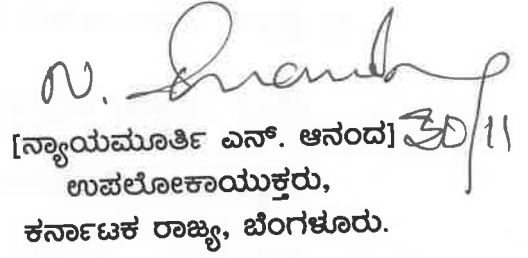 N. Anand
[ನ್ಯಾಯಮೂರ್ತಿ ಎನ್. ಆನಂದ] 30/11
ಉಪಲೋಕಾಯುಕ್ತರು,
ಕರ್ನಾಟಕ ರಾಜ್ಯ, ಬೆಂಗಳೂರು.